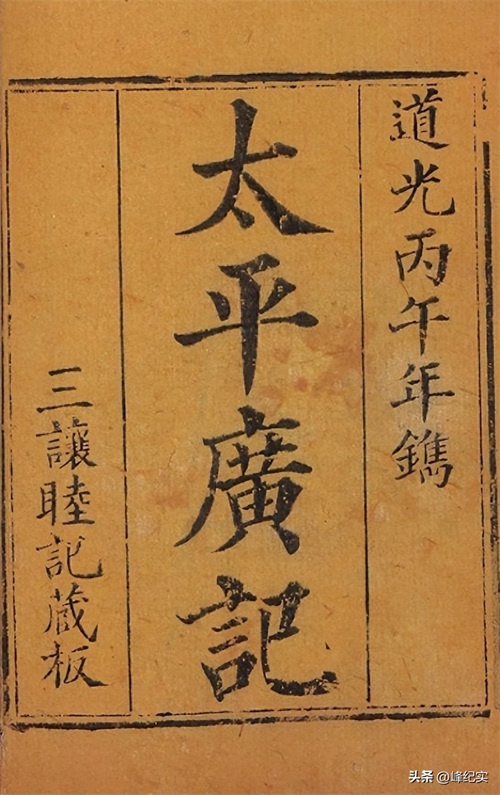 道光丙午年鐫
太平廣記
三讓睦記藏板
头条 @峰纪实